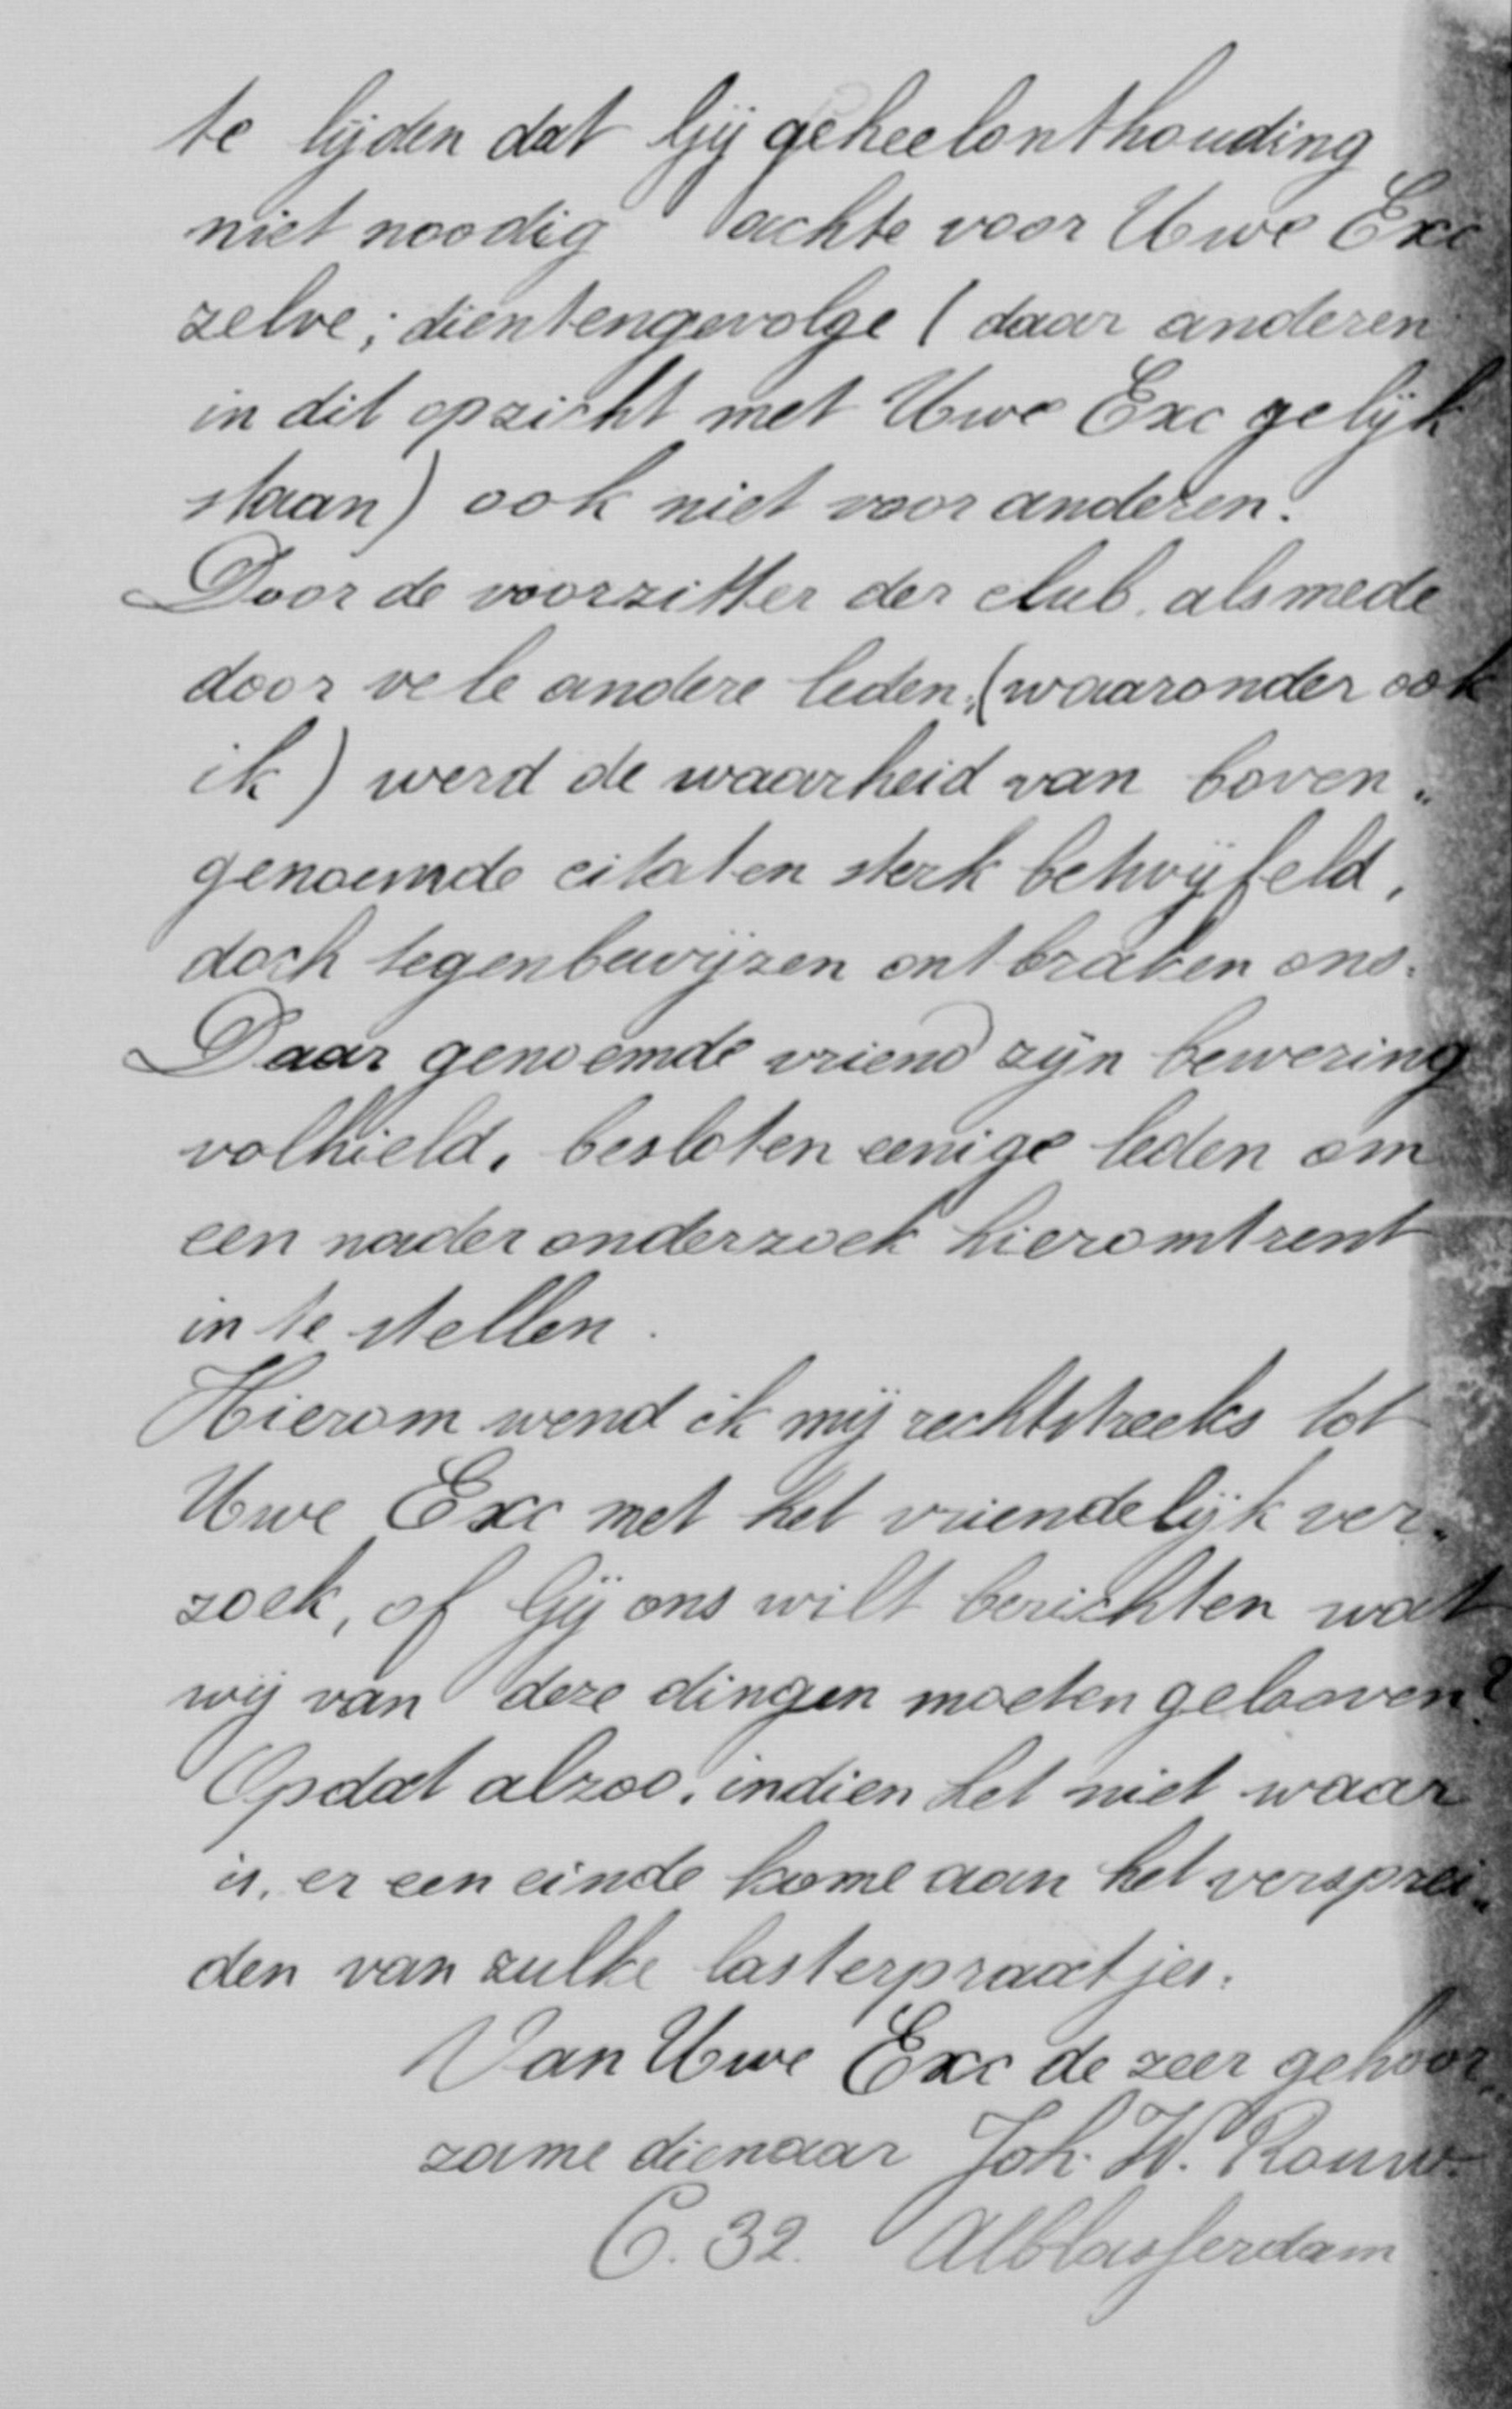 te lijden dat Gij geheelonthouding
niet noodig achte voor Uwe Exc
zelve; dientengevolge (daar anderen
in dit opzicht met Uwe Exc gelijk
staan) ook niet voor anderen.
Door de voorzitter der club, alsmede
door vele andere leden, (waaronder ook
ik) werd de waarheid van boven„
genoemde citaten sterk betwijfeld,
doch tegenbewijzen ontbraken ons.
Daar genoemde vriend zijn bewering
volhield, besloten eenige leden om
een nader onderzoek hieromtrent
in te stellen.
Hierom wend ik mij rechtstreeks tot
Uwe Exc met het vriendelijk ver„
zoek, of Gij ons wilt berichten wat
wij van deze dingen moeten gelooven?
Opdat alzoo, indien het niet waar
is, er een einde kome aan het versprei„
den van zulke lasterpraatjes.
Van Uwe Exc de zeer gehoor„
zame dienaar Joh. W. Rouw.
C. 32. Alblasserdam